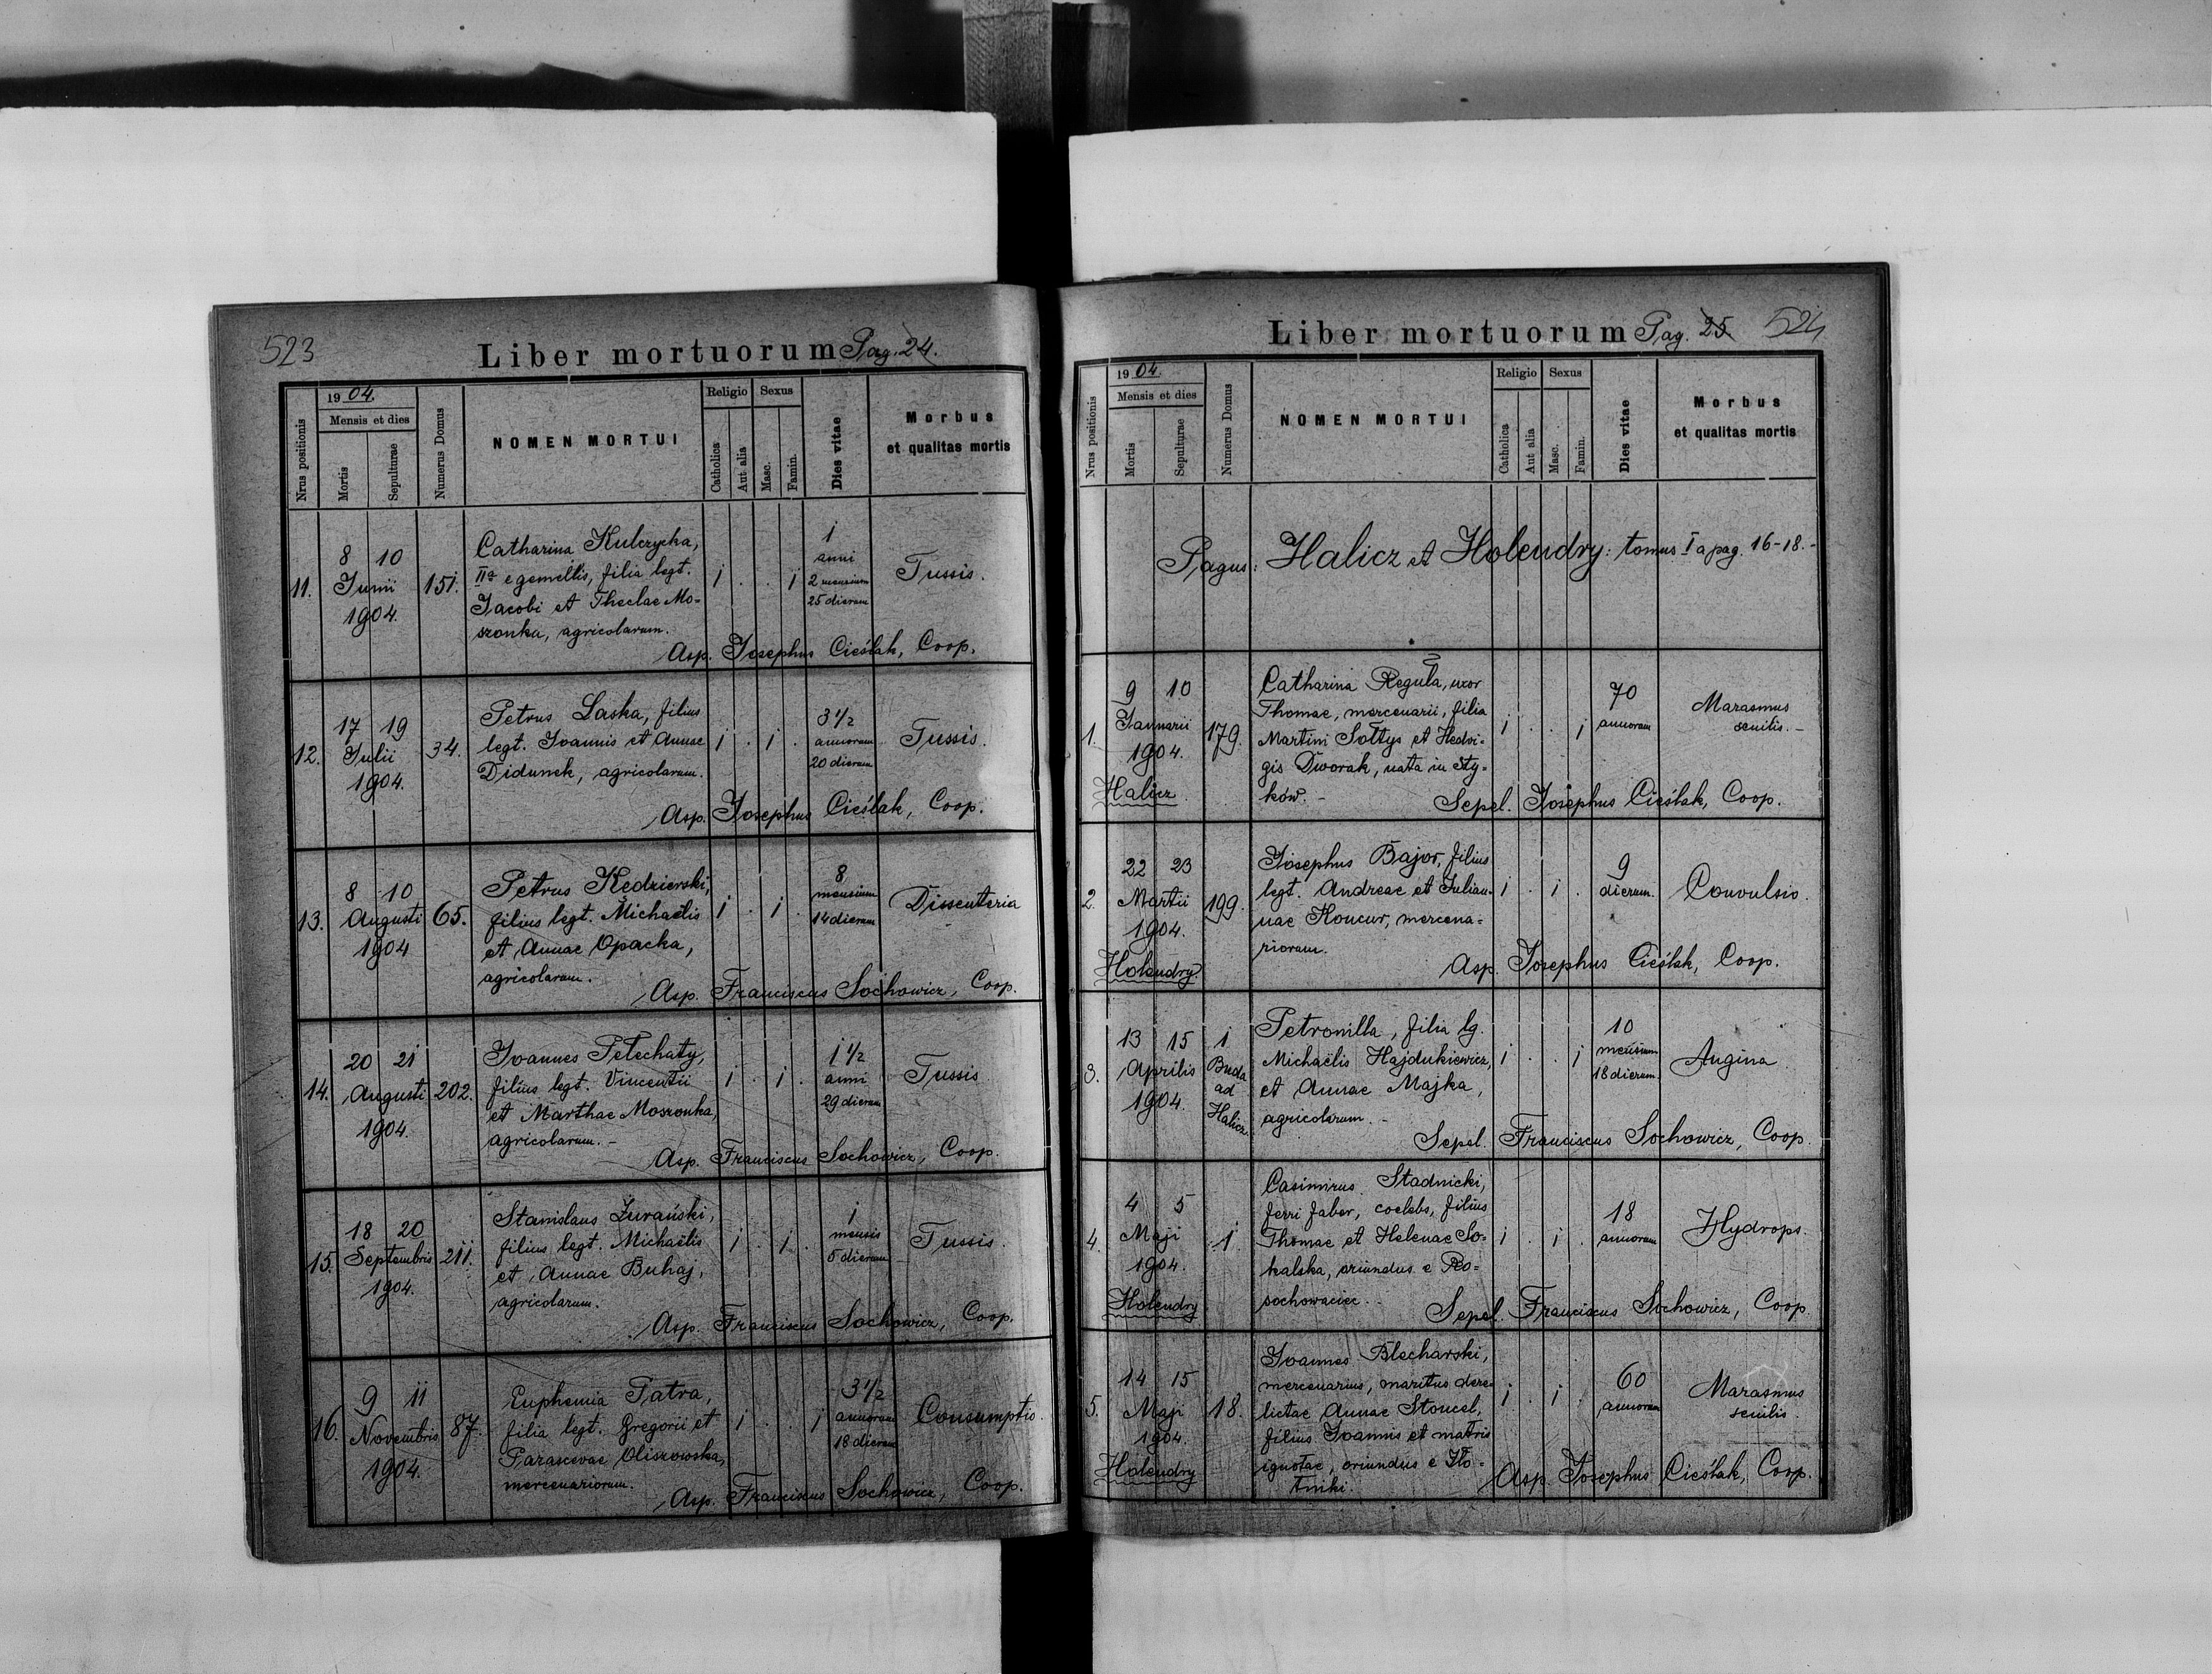 523
Liber mortuorum Pag. 24.
Nrus positionis
19 04.
Mensis et dies
Mortis
Sepulturae
Numerus Domus
NOMEN MORTUI
Religio
Catholica
Aut alia
Sexus
Masc.
Famin.
Dies vitae
Morbus
et qualitas mortis
11.
8 10
Junii
1904.
151.
Catharina Kulczycka,
IIa e gemellis, filia legt.
Jacobi et Theclae Mo-
szonka, agricolarum.
1 . . 1
1
anni
2 mensium
25 dierum
Tussis.
Asp. Josephus Cieślak, Coop.
12.
17 19
Julii
1904.
34.
Petrus Laska, filius
legt. Joannis et Annae
Didunek, agricolarum.
1 . 1 .
3 1/2
annorum
20 dierum
Tussis.
Asp. Josephus Cieślak, Coop.
13.
8 10
Augusti
1904
65.
Petrus Kędzierski,
filius legt. Michaëlis
et Annae Opacka,
agricolarum.
1 . 1 .
8
mensium
14 dierum
Dissenteria
Asp. Franciscus Sochowicz, Coop.
14.
20 21
Augusti
1904.
202.
Joannes Petechaty,
filius legt. Vincentii
et Marthae Moszonka,
agricolarum. -
1 . 1 .
1 1/2
anni
29 dierum
Tussis
Asp. Franciscus Sochowicz, Coop.
15.
18 20
Septembris
1904.
211.
Stanislaus Żurański,
filius legt. Michaëlis
et Annae Buhaj,
agricolarum.
1 . 1 .
1
mensis
5 dierum
Tussis.
Asp. Franciscus Sochowicz, Coop.
16.
9 11
Novembris
1904.
87.
Euphemia Patra,
filia legt. Gregorii et
Parascevae Oliszowska,
mercenariorum.
1 . . 1
3 1/2
annorum
18 dierum
Consumptio.
Asp. Franciscus Sochowicz, Coop.
Liber mortuorum Pag. 25 524
Nrus positionis
19 04.
Mensis et dies
Mortis
Sepulturae
Numerus Domus
NOMEN MORTUI
Religio
Catholica
Aut alia
Sexus
Masc.
Famin.
Dies vitae
Morbus
et qualitas mortis
Pagus: Halicz et Holendry: tomus I a pag. 16-18.-
1.
9 10
Januarii
1904.
Halicz
179.
Catharina Reguła, uxor
Thomae, mercenarii, filia
Martini Sołtys et Hedvi-
gis Dworak, nata in Sty-
ków. -
1 . . 1
70
annorum
Marasmus
senilis. -
Sepel. Josephus Cieślak, Coop.
2.
22 23
Martii
1904.
Holendry
199.
Josephus Bajor, filius
legt. Andreae et Julian-
nae Koncur, mercena-
riorum.
1 . 1 .
9
dierum.
Convulsio.
Asp. Josephus Cieślak, Coop.
3.
13 15
Aprilis
1904.
1
Buda
ad
Halicz.
Petronilla, filia lg.
Michaëlis Hajdukiewicz,
et Annae Majka,
agricolarum. -
1 . . 1
10
mensium
18 dierum
Angina
Sepel. Franciscus Sochowicz, Coop.
4.
4 5
Maji
1904.
Holendry
1.
Casimirus Stadnicki,
ferri faber, coelebs, filius
Thomae et Helenae So-
kalska, oriundus e Ro-
sochowaciec. -
1 . 1 .
18
annorum
Hydrops.
Sepel. Franciscus Sochowicz, Coop.
5.
14 15
Maji
1904.
Holendry
18.
Joannes Blecharski,
mercenarius, maritus dere-
lictae Annae Stoncel,
filius Joannis et matris
ignotae, oriundus e Zło-
tniki.
1 . 1 .
60
annorum
Marasmus
senilis.
Asp. Josephus Cieślak, Coop.